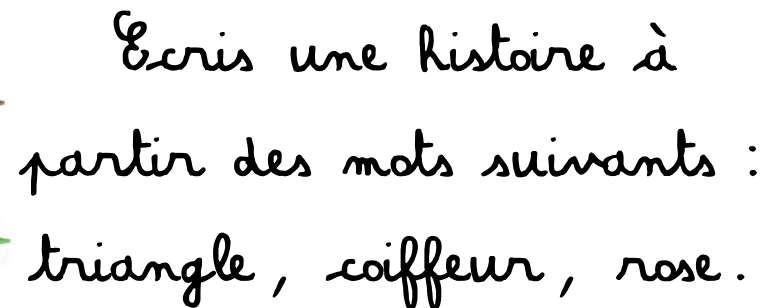 Ecris une histoire à
partir des mots suivants :
triangle, coiffeur, rose.